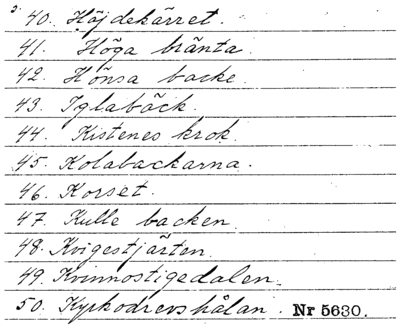 40. Höjdekärret.
41. Höga bränta.
42. Hönsa backe.
43. Iglabäck.
44. Kistenes krok.
45. Kolabackarna.
46. Korset.
47. Kulle backen.
48. Kvigestjärten.
49. Kvinnostigedalen.
50. Kyrkodrevshålan. Nr 5630.